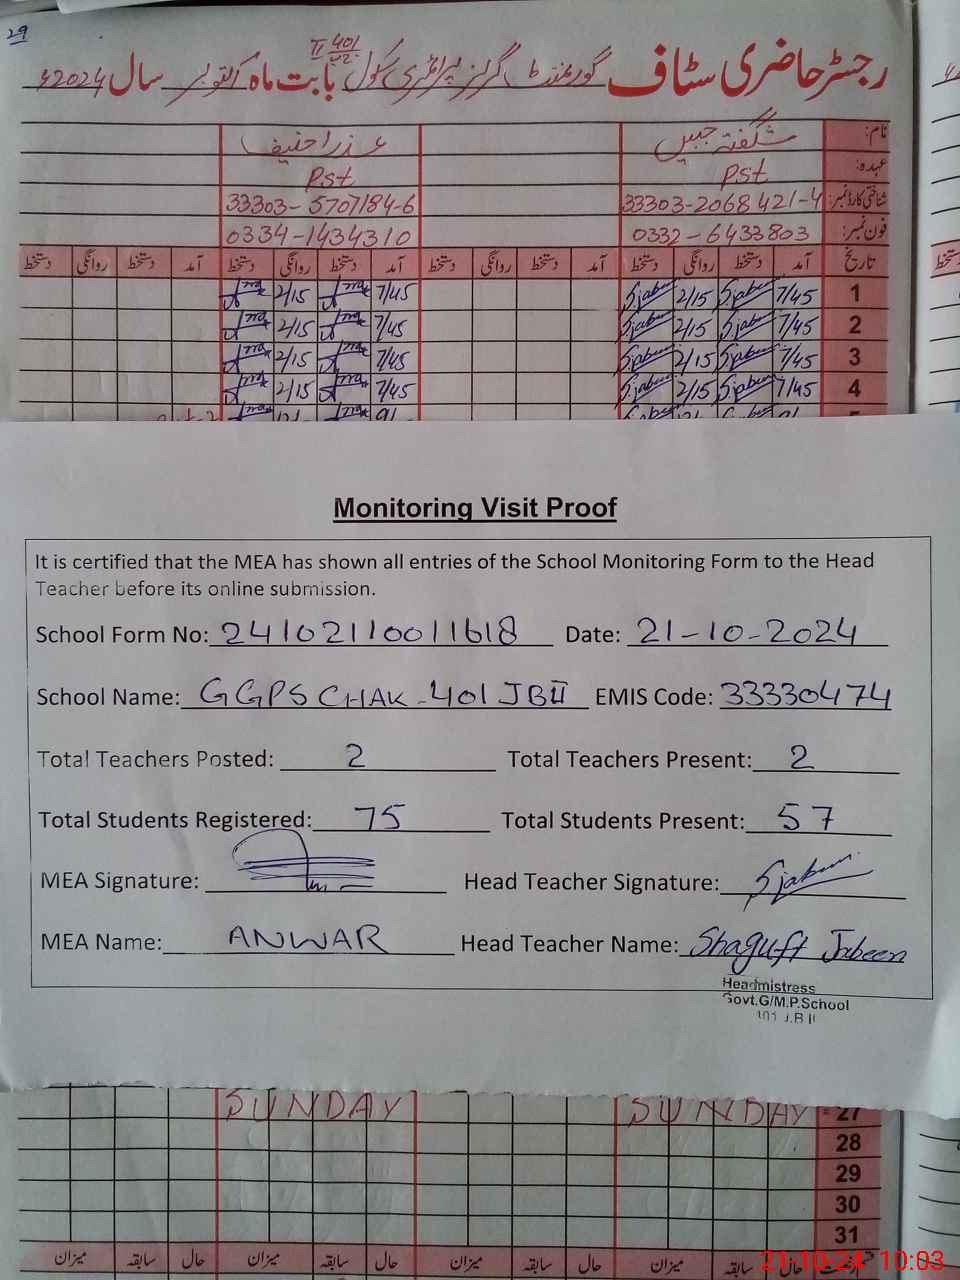 29
رجسٹر حاضری سٹاف گورنمنٹ گرلز پرائمری سکول 401 II بابت ماہ اکتوبر سال 2024ء
نام: شگفتہ جبیں عذرا حنیف
عہدہ: PST PST
شناختی کارڈ نمبر: 33303-2068421-4 33303-5707184-6
فون نمبر: 0332-6433803 0334-1434310
تاریخ آمد دستخط روانگی دستخط آمد دستخط روانگی دستخط آمد دستخط روانگی دستخط آمد دستخط روانگی دستخط
1 7/45 Sjabeen 2/15 Sjabeen 7/45 2/15
2 7/45 Sjabeen 2/15 Sjabeen 7/45 2/15
3 7/45 Sjabeen 2/15 Sjabeen 7/45 2/15
4 7/45 Sjabeen 2/15 Sjabeen 7/45 2/15
Monitoring Visit Proof
It is certified that the MEA has shown all entries of the School Monitoring Form to the Head
Teacher before its online submission.
School Form No: 24102110011618 Date: 21-10-2024
School Name: GGPS CHAK-401 JB II EMIS Code: 33330474
Total Teachers Posted: 2 Total Teachers Present: 2
Total Students Registered: 75 Total Students Present: 57
MEA Signature: Head Teacher Signature: Sjabeen
MEA Name: ANWAR Head Teacher Name: Shaguft Jabeen
Headmistress
Govt.G/M.P.School
401 J.B II
27 SUNDAY SUNDAY
28
29
30
31
حال سابقہ میزان حال سابقہ میزان حال سابقہ میزان حال سابقہ میزان
21-10-24 10:03